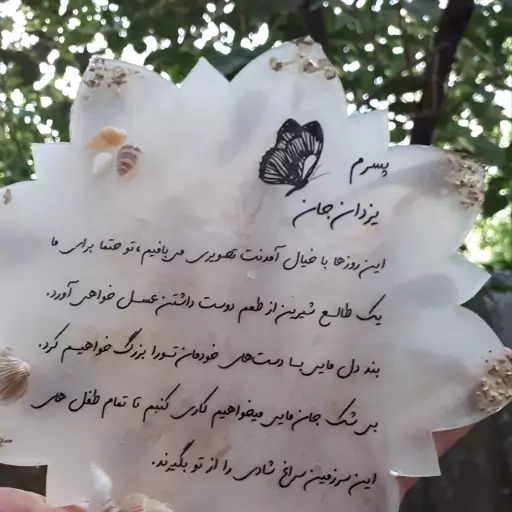 پسرم
یزدان جان
این روزها با خیال آمدنت تصویری می‌بافیم، تو حتما برای ما
یک طالع شیرین از طعم دوست داشتن عسل خواهی آورد.
بند دل مایی با دست‌های خودمان تو را بزرگ خواهیم کرد.
بی شک جان مایی میخواهیم کاری کنیم تا تمام طفل های
این سرزمین سراغ شادی را از تو بگیرند.